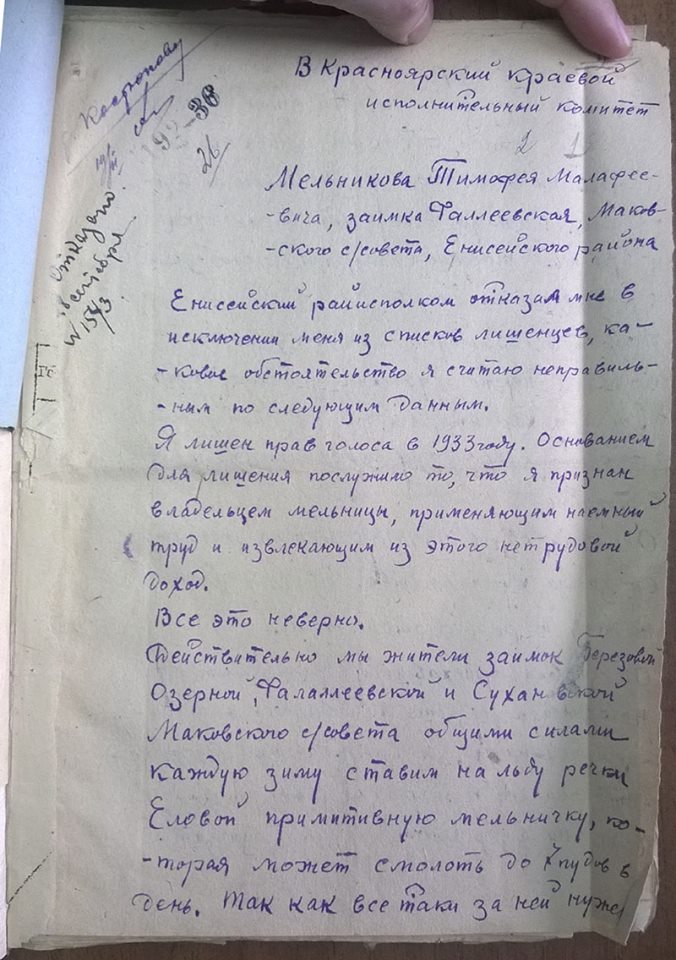 В Красноярский краевой
исполнительный комитет
92-38
26
2 1
Мельникова Тимофея Малафее-
-вича, заимка Фаллеевская, Маков-
-ского с/совета, Енисейского района
Отказано
Енисейский райисполком отказал мне в
исключении меня из списков лишенцев, ка-
-ковое обстоятельство я считаю неправиль-
-ным по следующим данным.
Я лишен прав голоса в 1933 году. Основанием
для лишения послужило то, что я признан
владельцем мельницы, применяющим наемный
труд и извлекающим из этого нетрудовой
доход.
Все это неверно.
Действительно мы жители заимок Березовой
Озерной, Фалаллеевской и Сухановской
Маковского с/совета общими силами
каждую зиму ставим на льду речки
Еловой примитивную мельничку, ко-
-торая может смолоть до 7 пудов в
день. Так как все таки за ней нужен